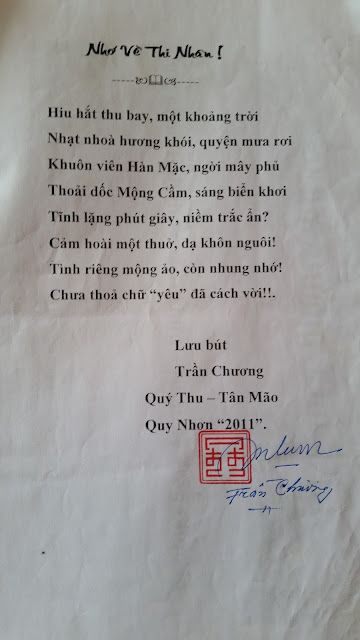 Nhớ Về Thi Nhân !
Hiu hắt thu bay, một khoảng trời
Nhạt nhoà hương khói, quyện mưa rơi
Khuôn viên Hàn Mặc, ngời mây phủ
Thoải dốc Mộng Cầm, sáng biển khơi
Tĩnh lặng phút giây, niềm trắc ẩn?
Cảm hoài một thuở, dạ khôn nguôi!
Tình riêng mộng ảo, còn nhung nhớ!
Chưa thoả chữ “yêu” đã cách vời!!.
Lưu bút
Trần Chương
Quý Thu – Tân Mão
Quy Nhơn “2011”.
Trần Chương